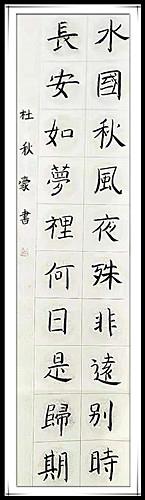 水國秋風夜殊非遠別時
長安如夢裡何日是歸期
杜秋豪書